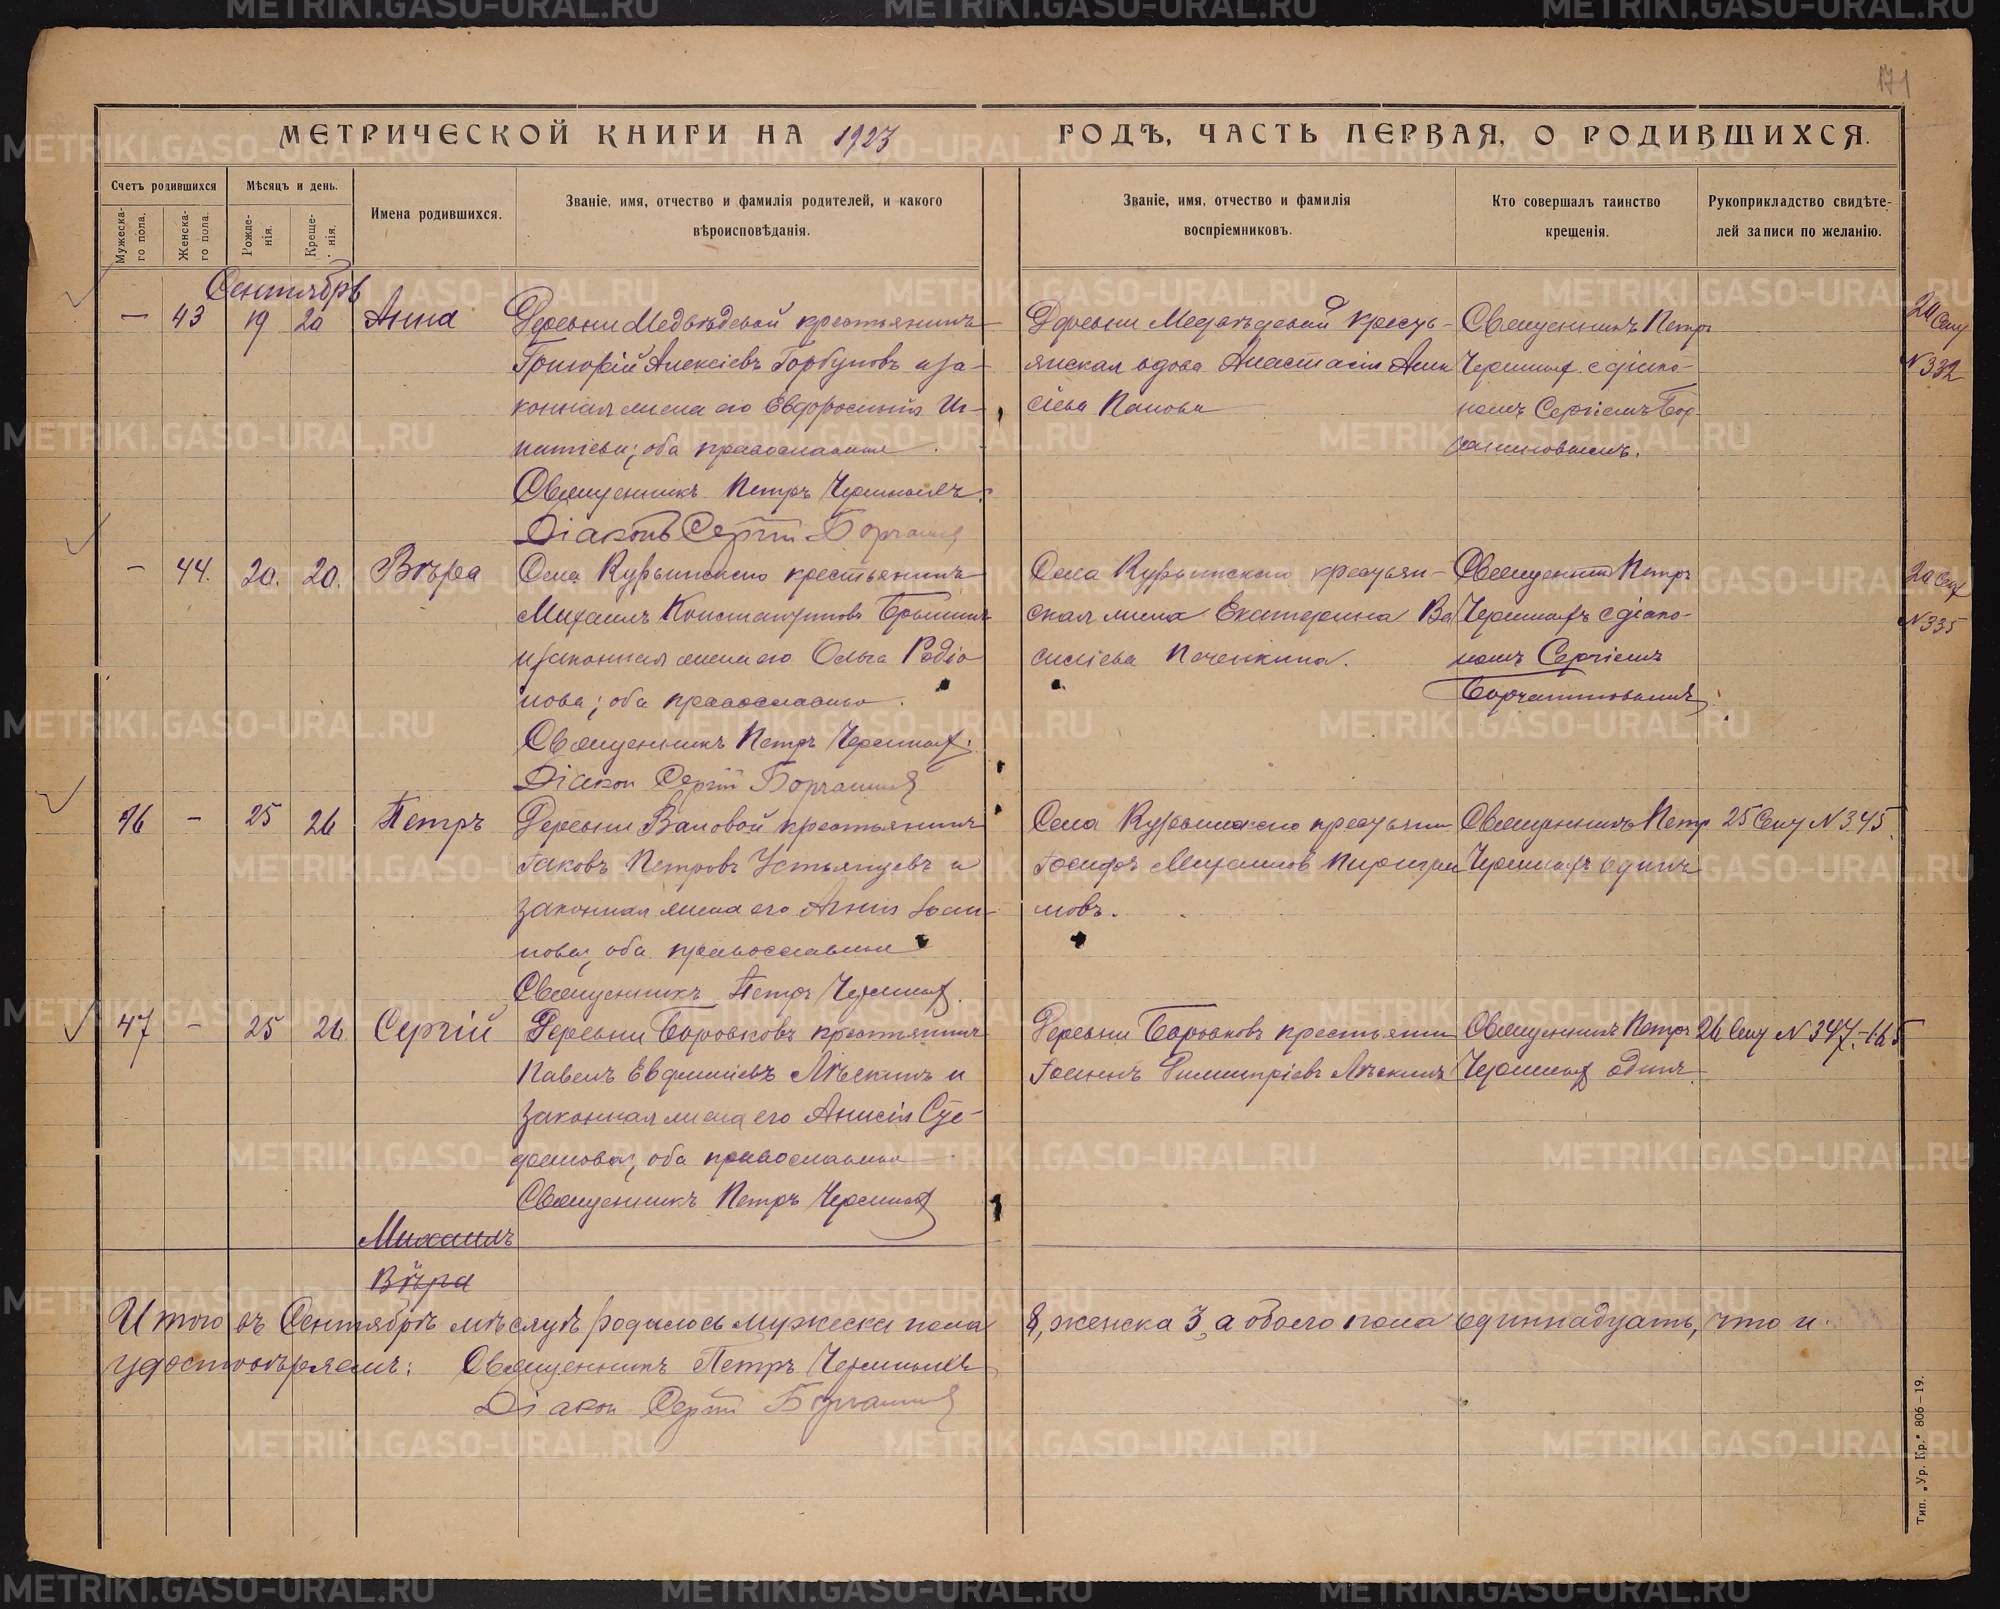 171
МЕТРИЧЕСКОЙ КНИГИ НА 1923 ГОДЪ, ЧАСТЬ ПЕРВАЯ, О РОДИВШИХСЯ.
Счетъ родившихся
Мужеска-
го пола.
Женска-
го пола.
Мѣсяцъ и день.
Рожде-
нія.
Креще-
нія.
Имена родившихся.
Званіе, имя, отчество и фамилія родителей, и какого
вѣроисповѣданія.
Званіе, имя, отчество и фамилія
воспріемниковъ.
Кто совершалъ таинство
крещенія.
Рукоприкладство свидѣте-
лей записи по желанію.
Сентябрь
— 43 19 20 Анна
Деревни Медвѣдевой крестьянинъ
Григорій Алексіевъ Горбуновъ и за-
конная жена его Евфросинія Иг-
натіева; оба православные.
Священникъ Петръ
Діаконъ Сергій
Деревни Медвѣдевой крестья-
нская вдова Анастасія
сіева Панова
Священникъ Петръ
с діако-
номъ Сергіемъ
20 Сент
№ 332
— 44. 20. 20. Вѣра
Села Курьинскаго крестьянинъ
Михаилъ Константиновъ
и законная жена его Ольга Родіо
нова; оба православные.
Священникъ Петръ
Діакон Сергій
Села Курьинскаго крестьян-
ская жена Екатерина Ва
силіева Печенкина.
Священникъ Петръ
с діако-
номъ Сергіемъ
20 Сент
№ 335
46 — 25 26 Петръ
Деревни Валовой крестьянинъ
Іаковъ Петровъ Устьянцевъ и
законная жена его Агнія Іоан-
нова; оба православные
Священникъ Петръ
Села Курьинскаго крестьянин
Іосифъ Михаиловъ
мовъ.
Священникъ Петръ
одинъ
25 Сент № 345.
47 — 25 26 Сергій
Деревни Боровковъ крестьянинъ
Павелъ Евфиміевъ Лѣскинъ и
законная жена его Анисія Сте-
фанова; оба православные
Священникъ Петръ
Деревни Боровковъ крестьянин
Іоаннъ Димитріевъ Лѣскинъ
Священникъ Петръ
одинъ
26 Сент № 347
Михаилъ
Вѣра
Итого въ Сентябрѣ мѣсяцѣ родилось мужеска пола 8, женска 3, а обоего пола одиннадцать, что и
удостовѣряемъ: Священникъ Петръ
Діакон Сергій
Тип. „Ур. Кр.“ 806—19.
METRIKI.GASO-URAL.RU